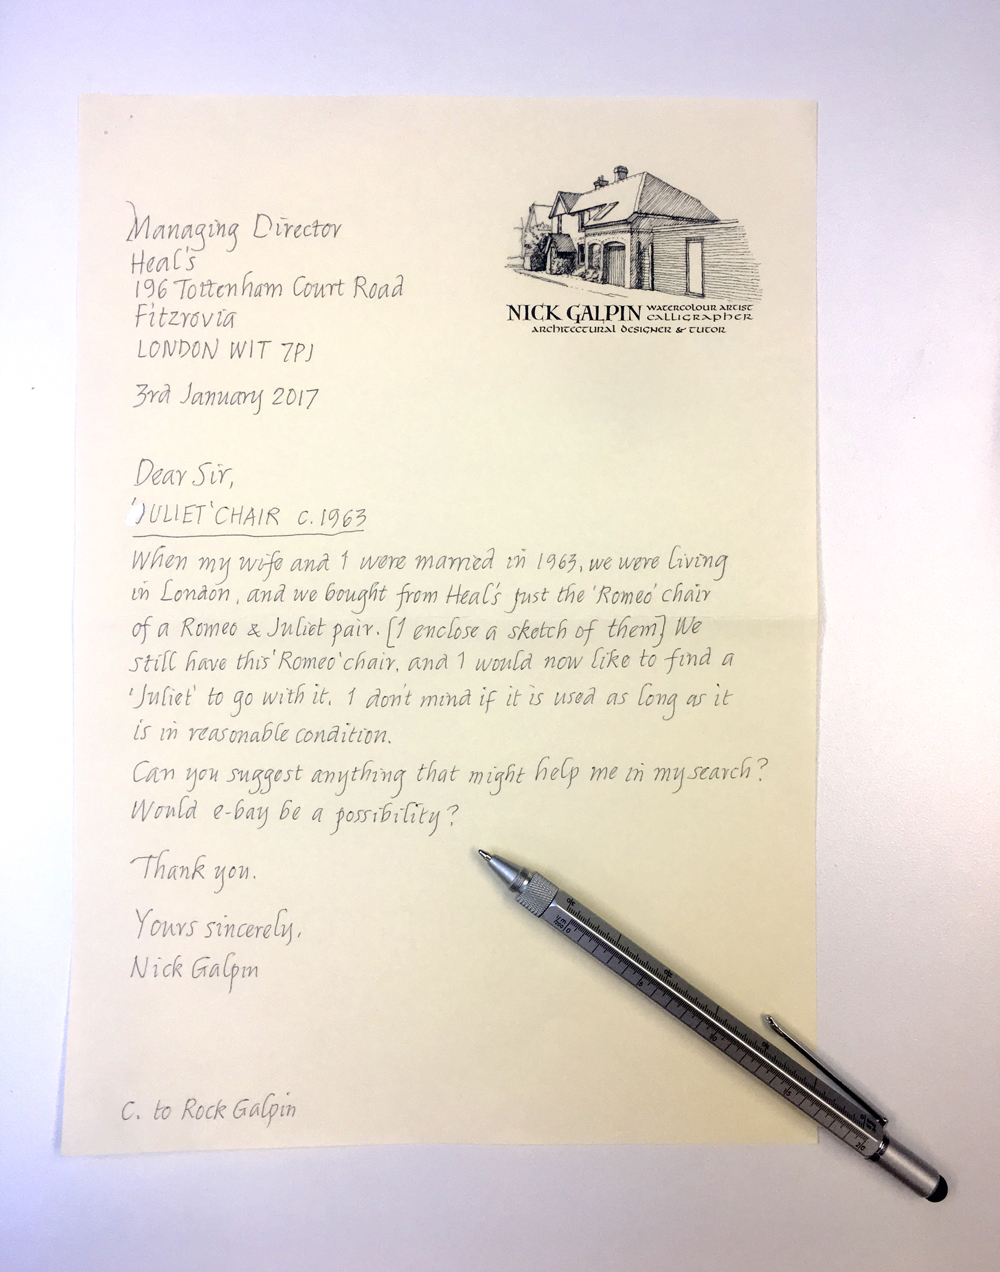 Managing Director
Heal's
196 Tottenham Court Road
Fitzrovia
LONDON W1T 7PJ
3rd January 2017
NICK GALPIN WATERCOLOUR ARTIST
CALLIGRAPHER
ARCHITECTURAL DESIGNER & TUTOR
Dear Sir,
'JULIET' CHAIR c. 1963
When my wife and I were married in 1963, we were living
in London, and we bought from Heal's just the 'Romeo' chair
of a Romeo & Juliet pair. [I enclose a sketch of them] We
still have this 'Romeo' chair, and I would now like to find a
'Juliet' to go with it. I don't mind if it is used as long as it
is in reasonable condition.
Can you suggest anything that might help me in my search?
Would e-bay be a possibility?
Thank you.
Yours sincerely,
Nick Galpin
C. to Rock Galpin